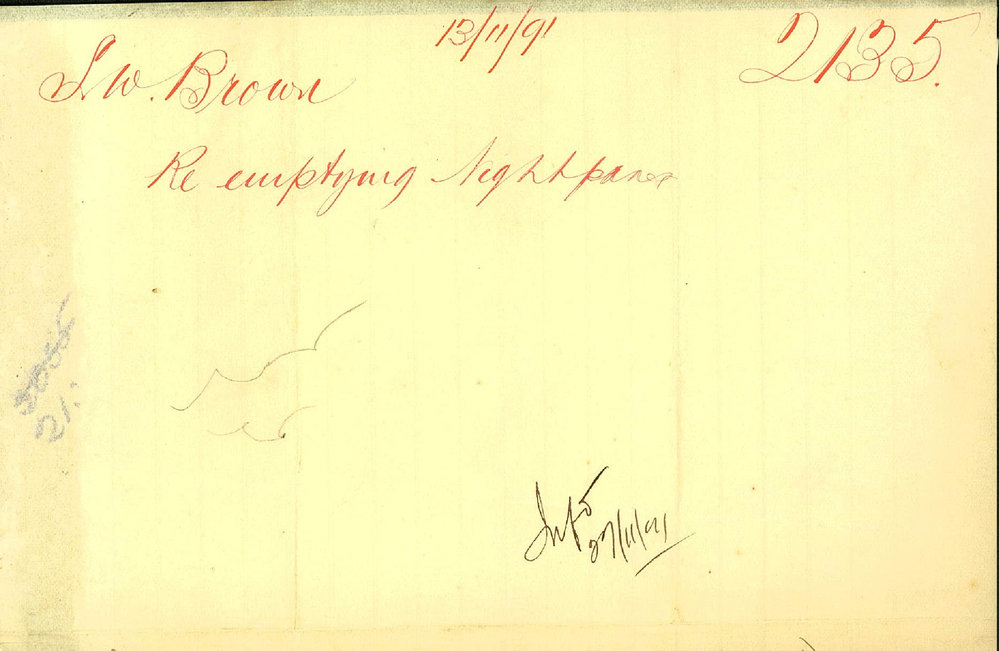 13/11/91
2135.
J. W. Brown
Re emptying Nightpans
27/11/91